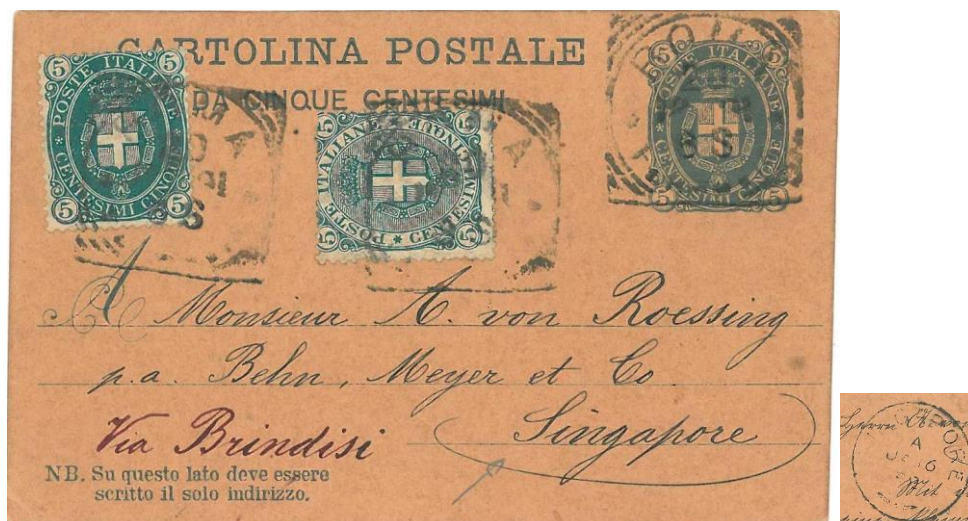 CARTOLINA POSTALE
DA CINQUE CENTESIMI
POSTE ITALIANE
CENTESIMI CINQUE
5 5 5 5
POSTE ITALIANE
CENTESIMI CINQUE
5 5 5 5
POSTE ITALIANE
CENTESIMI CINQUE
5 5 5 5
A Monsieur A. von Roessing
p.a. Behn, Meyer et Co
Singapore
Via Brindisi
NB. Su questo lato deve essere
scritto il solo indirizzo.
Herrn
A
Mit